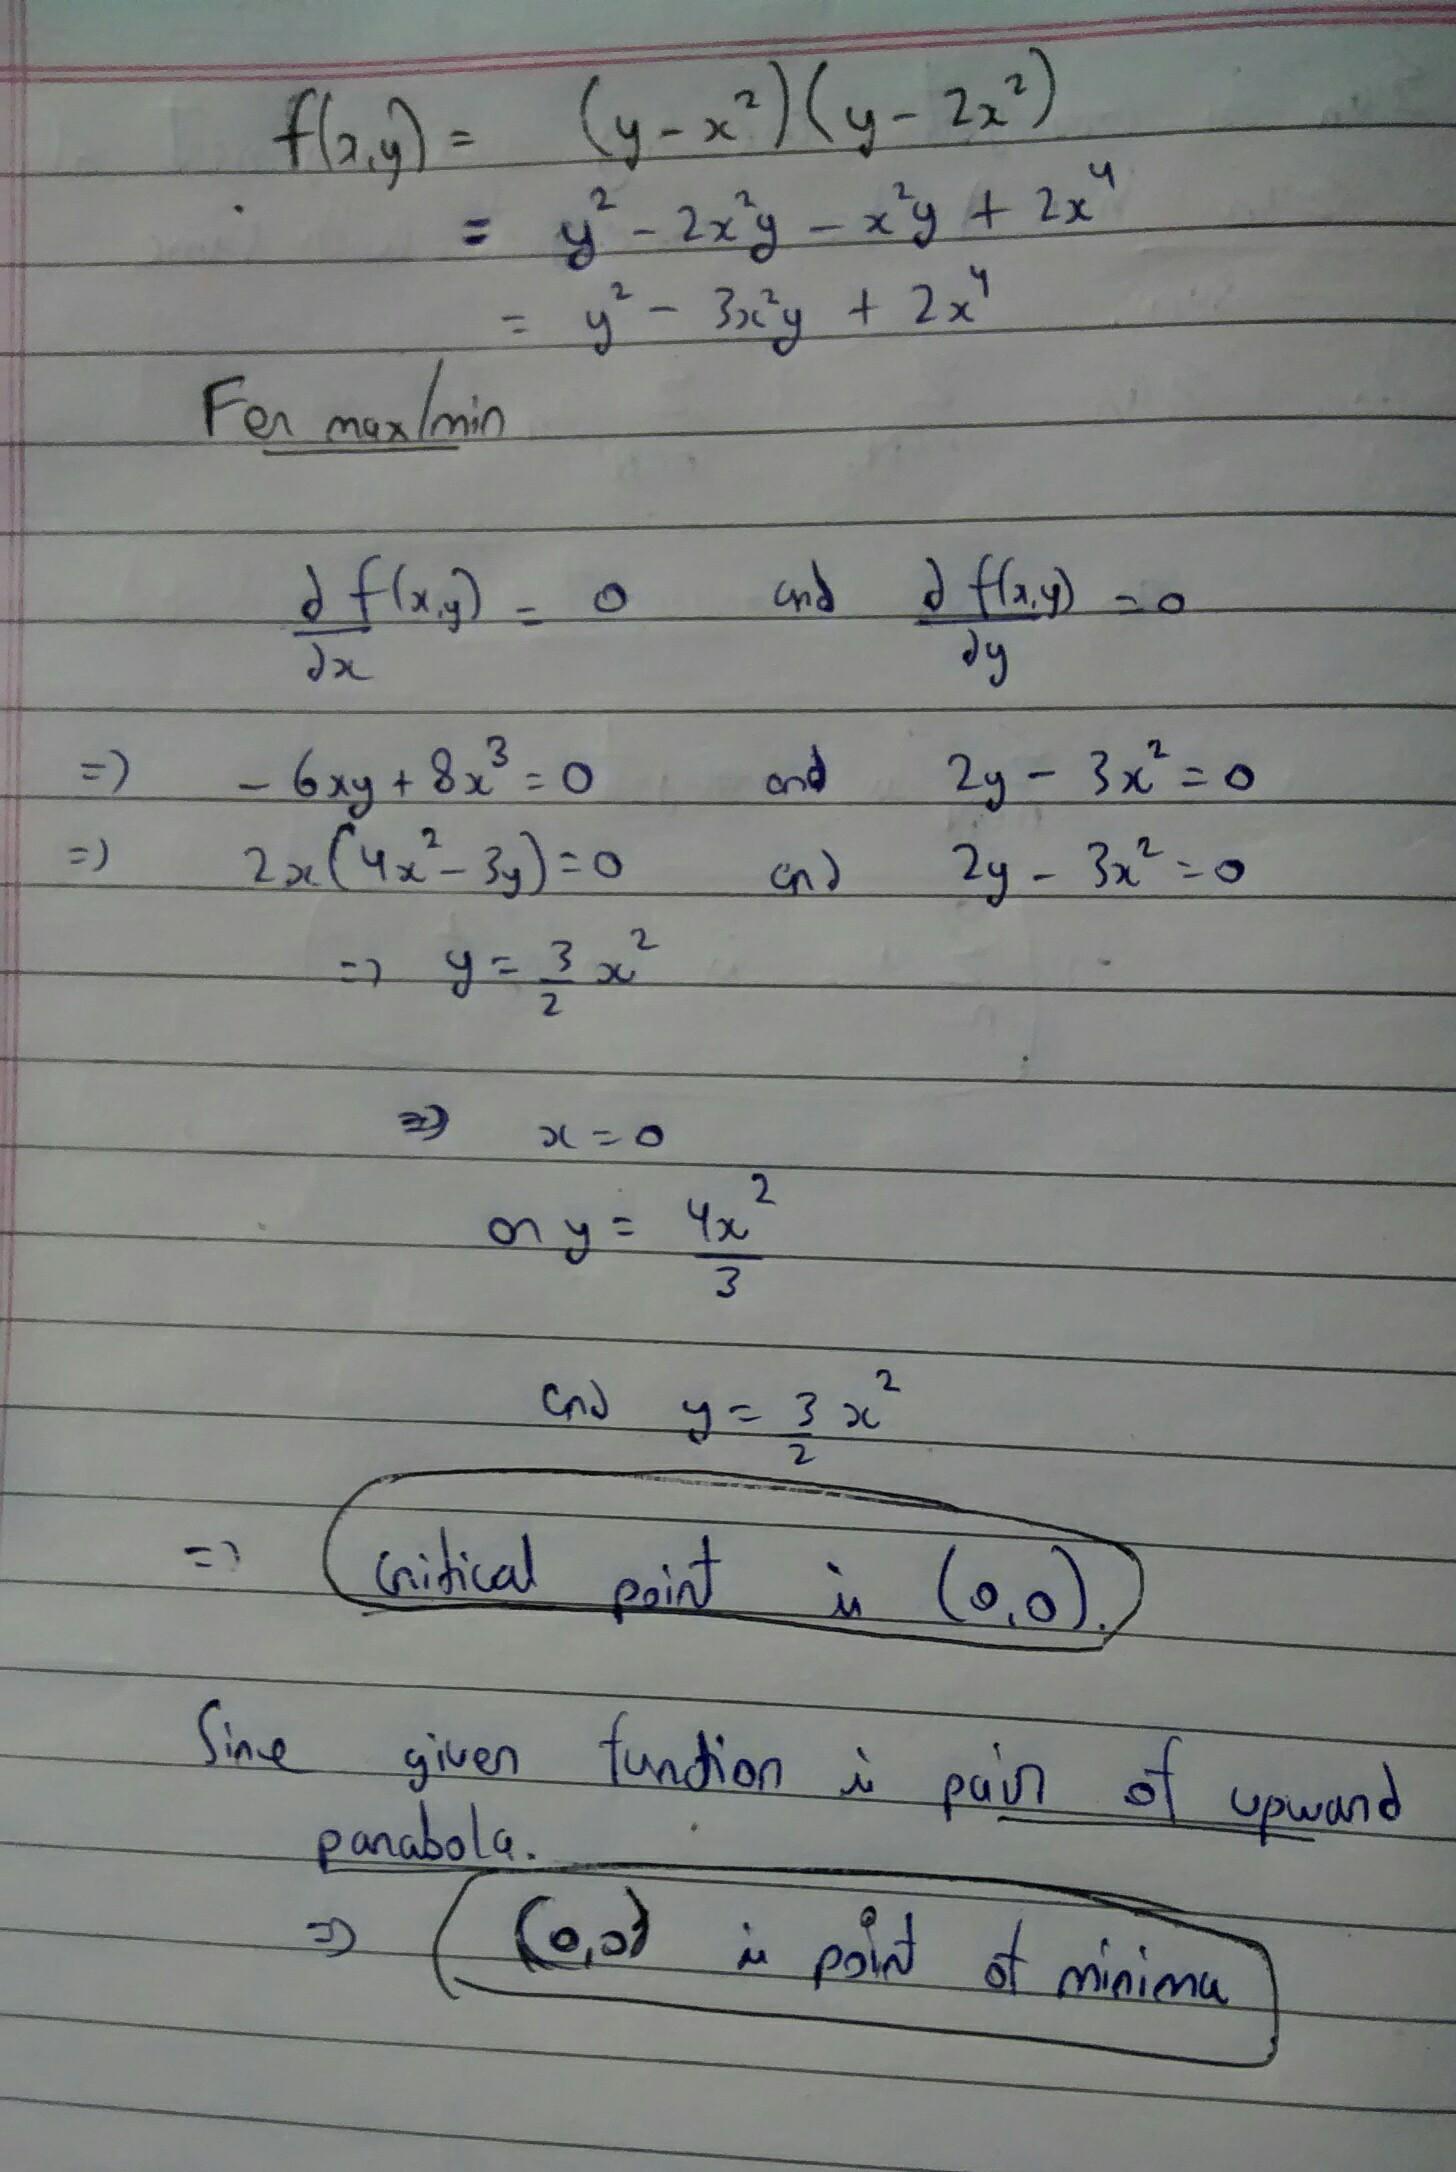 f(x,y) = (y - x²)(y - 2x²)
= y² - 2x²y - x²y + 2x⁴
= y² - 3x²y + 2x⁴
For max/min
∂f(x,y)/∂x = 0 and ∂f(x,y)/∂y = 0
=> - 6xy + 8x³ = 0 and 2y - 3x² = 0
=> 2x(4x² - 3y) = 0 and 2y - 3x² = 0
=> y = 3/2 x²
=> x = 0
or y = 4x²/3
and y = 3/2 x²
=> critical point is (0,0).
Since given function is pair of upward
parabola.
=> (0,0) is point of minima